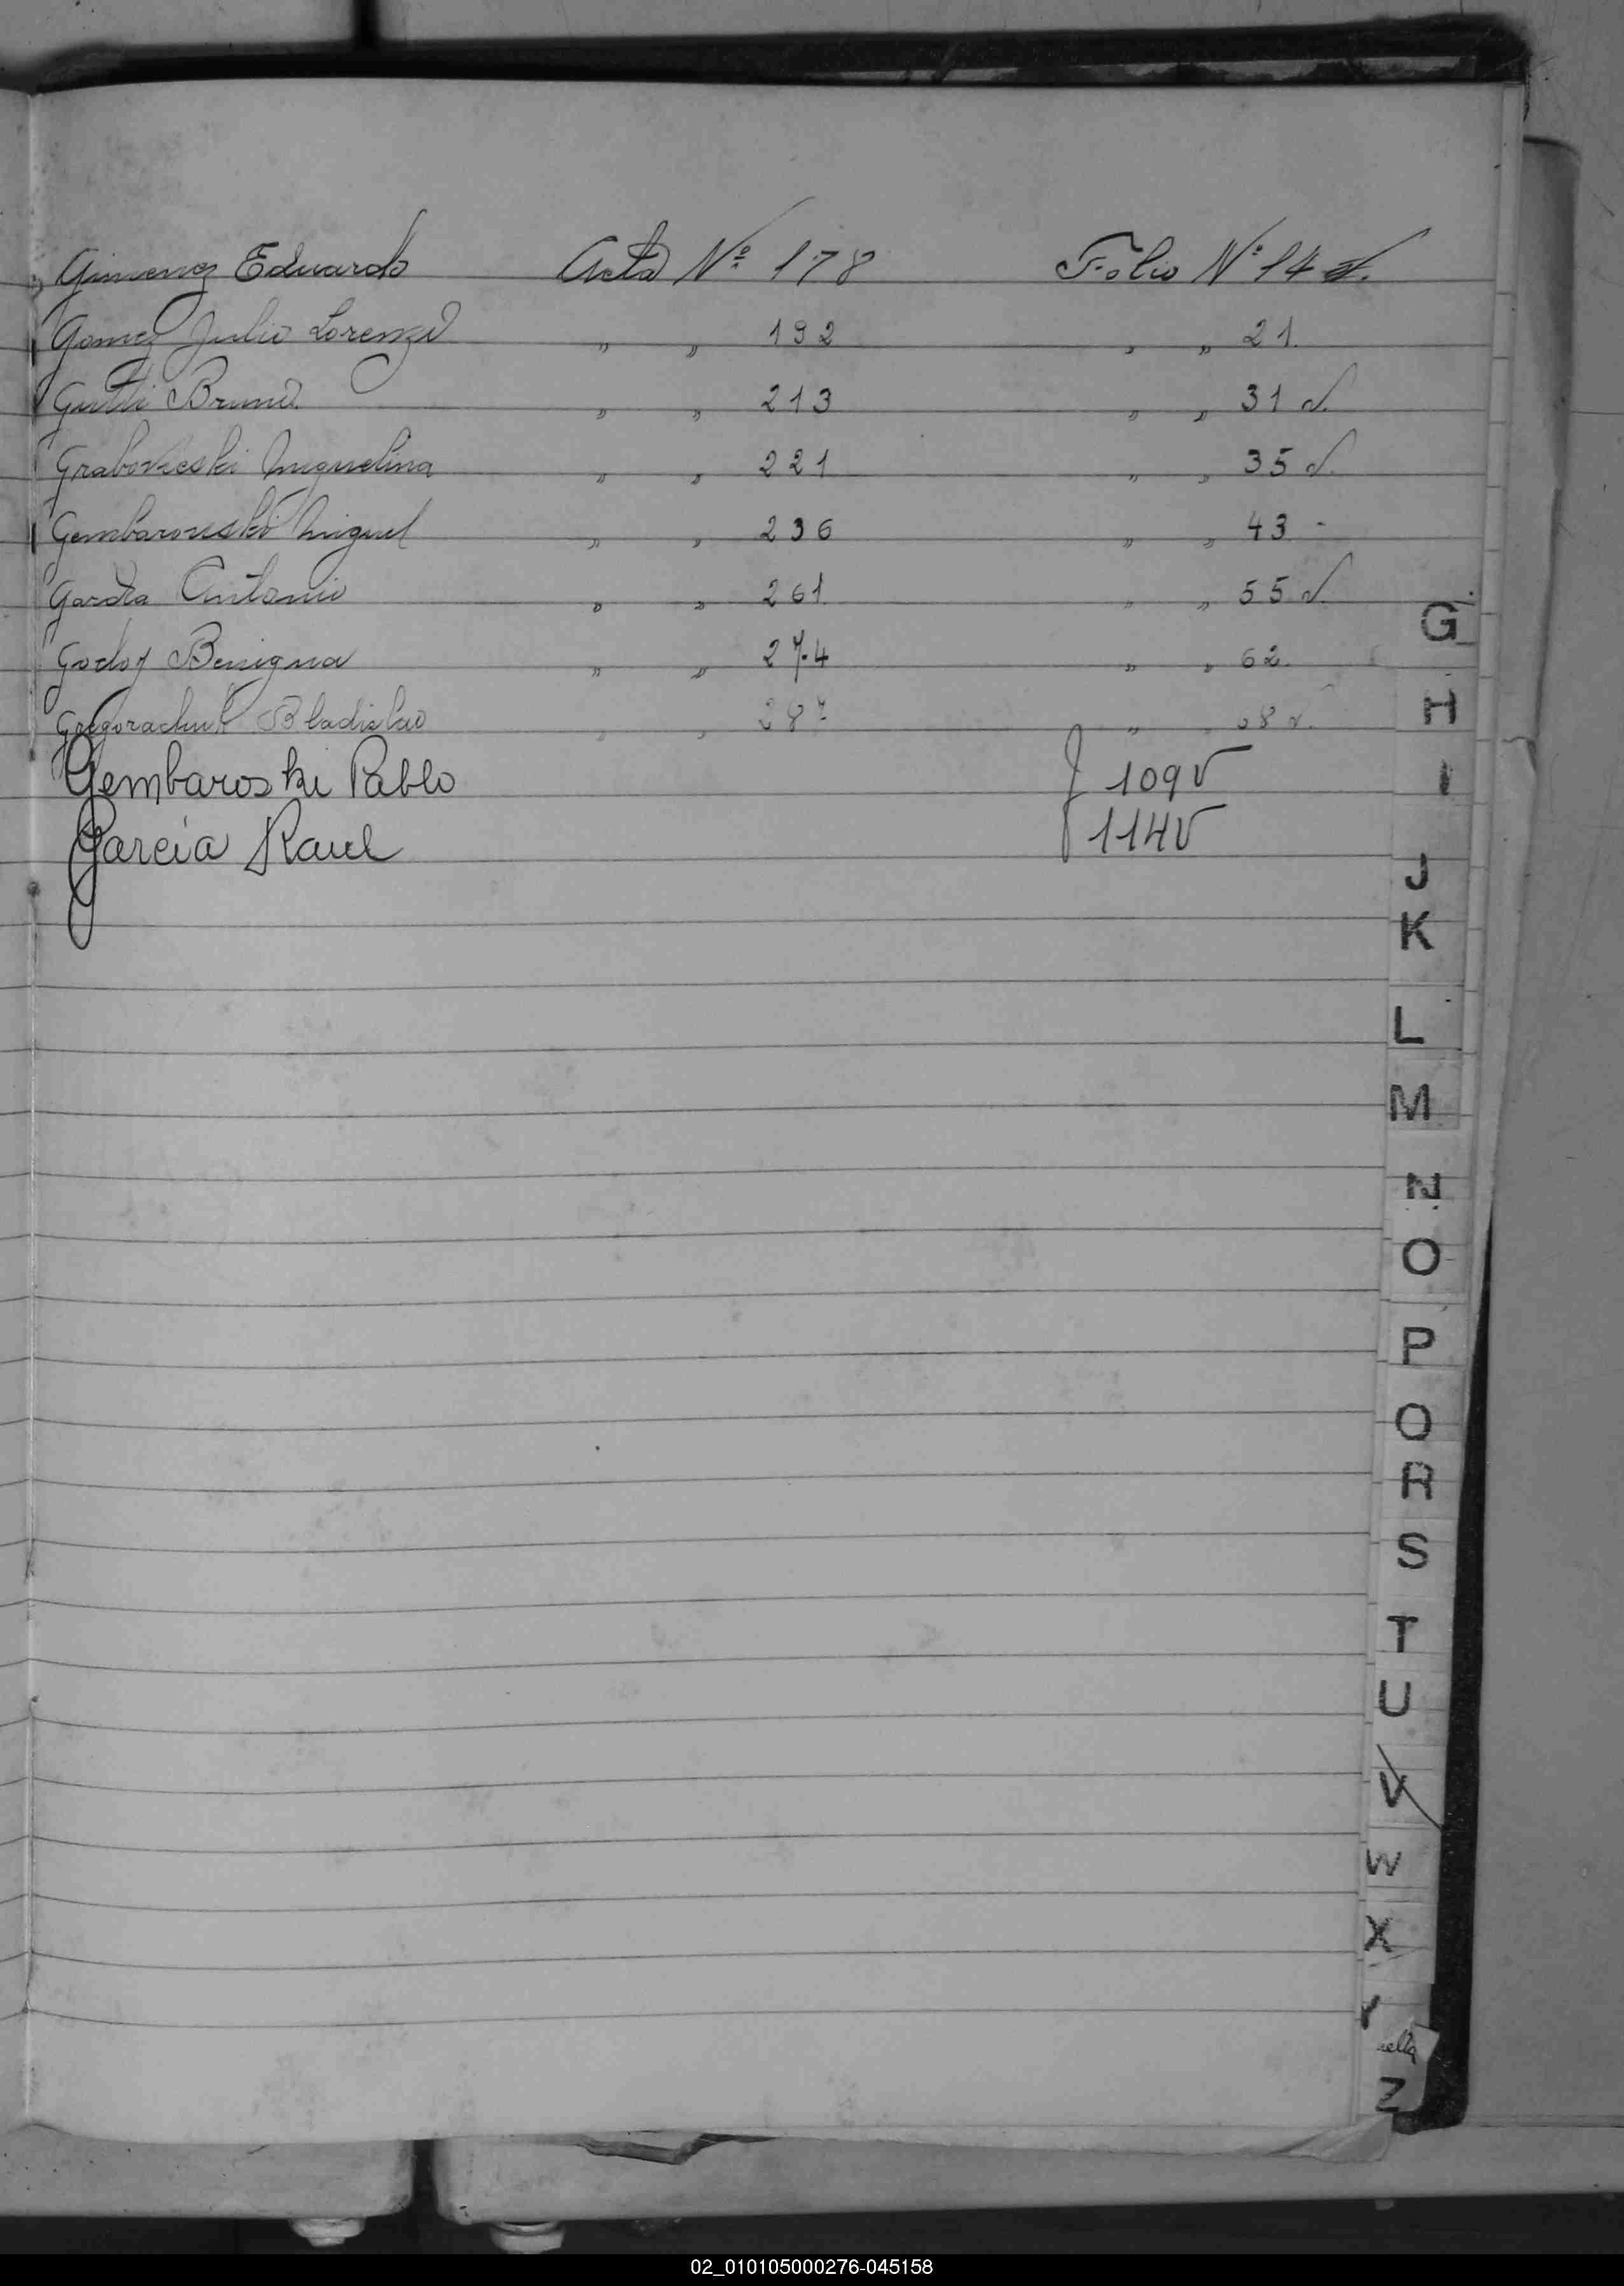 Gimenez Eduardo Acta Nº 178 Folio Nº 14 v.
Gomez Julio Lorenzo " " 192 " " 21.
Gutti Bruno. " " 213 " " 31 v.
Graboveski Miguelina " " 221 " " 35 v.
Gembarouski Miguel " " 236 " " 43 -
Antonio " " 261 " " 55 v.
Godoy Benigna " " 274 " " 62.
Gregorachuk Bladislao " " 287 " " 68 v.
Gembaroski Pablo f 109 v
Garcia Raul f 114 v
G
H
I
J
K
L
M
N
O
P
Q
R
S
T
U
V
W
X
Y
Z
02_010105000276-045158